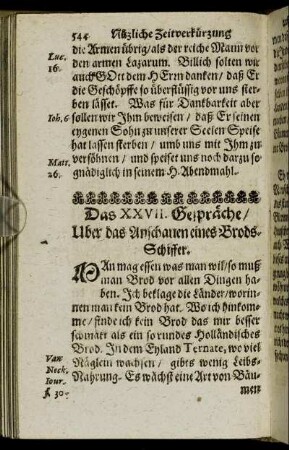 544 Nüzliche Zeitverkürzung
die Armen übrig/als der reiche Mann vor
Luc. 16.
den armen Lazarum. Billich solten wir
auch GOtt dem HErrn danken/ daß Er
die Geschöpffe so überflüssig vor uns ster-
ben lässet. Was für Dankbarkeit aber
Joh. 6
sollen wir Jhm beweisen/ daß Er seinen
eygenen Sohn zu unserer Seelen Speise
hat lassen sterben/ umb uns mit Jhm zu
Matt. 26.
versöhnen/ und speiset uns noch darzu so
gnädiglich in seinem H. Abendmahl.
Das XXVII. Gespräche/
Uber das Anschauen eines Brods-
Schiffer.
MAn mag essen was man wil/ so muß
man Brod vor allen Dingen ha-
ben. Jch beklage die Länder/ worin-
nen man kein Brod hat. Wo ich hinkom-
me/ finde ich kein Brod das mir besser
schmäkt als ein so rundes Holländisches
Brod. Jn dem Eyland Ternate, wo viel
Van Neck. Iour. f. 30.
Näglein wachsen/ gibts wenig Leibs-
Nahrung. Es wächst eine Art von Bäu-
men